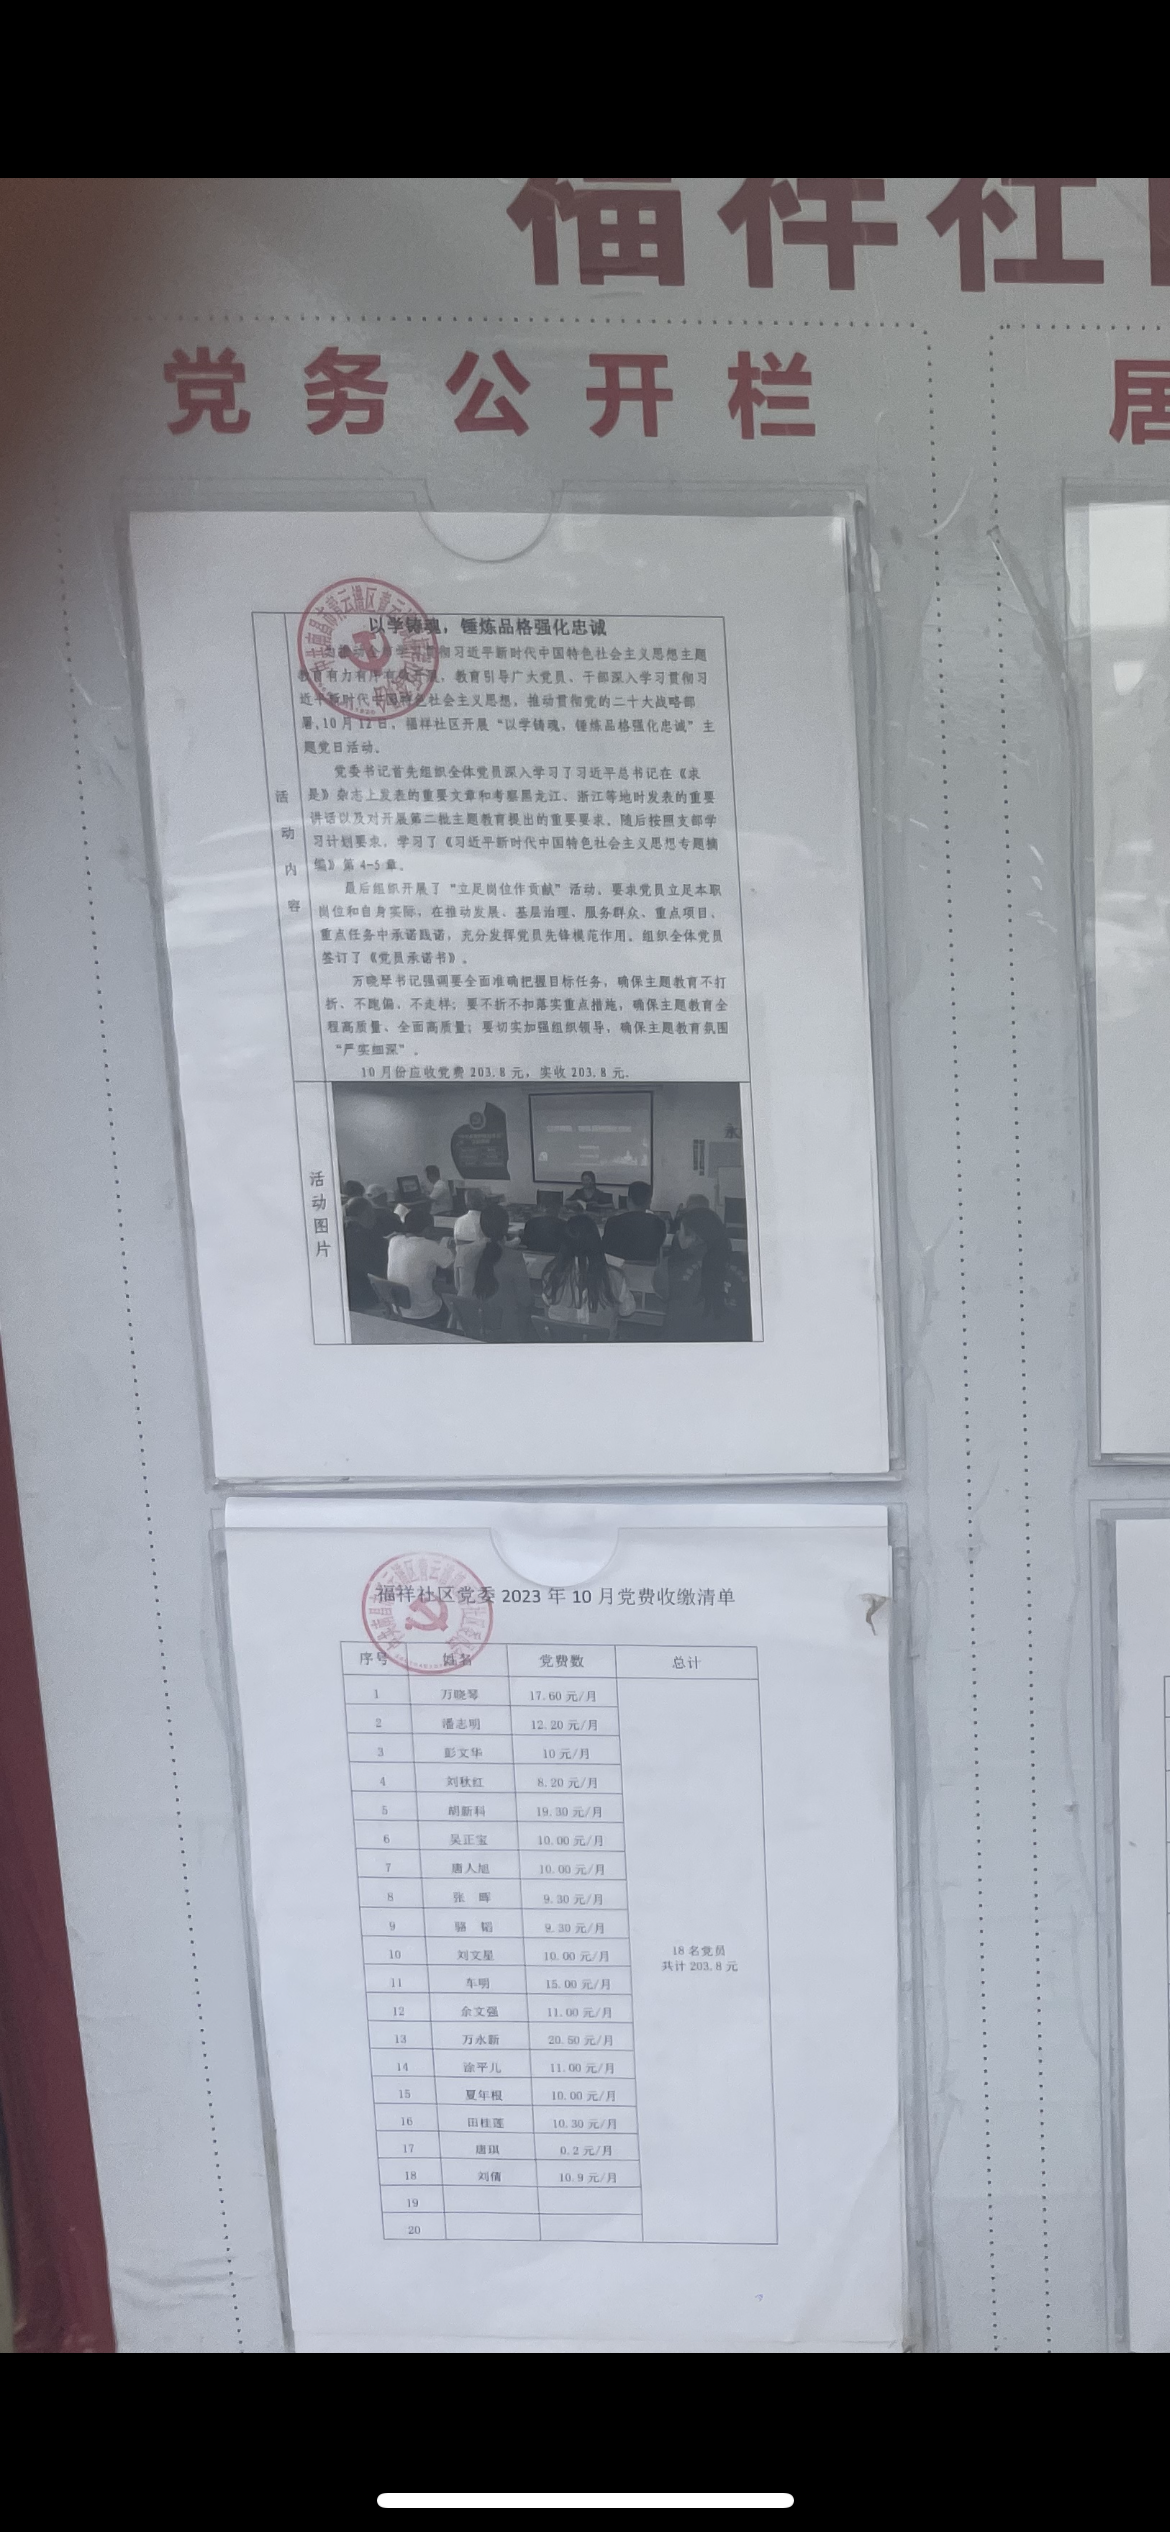 福祥社
党务公开栏
居
以学铸魂，锤炼品格强化忠诚
习近平新时代中国特色社会主义思想主题
教育有力有序有效开展，教育引导广大党员、干部深入学习贯彻习
近平新时代中国特色社会主义思想，推动贯彻党的二十大战略部
署，10月12日，福祥社区开展“以学铸魂，锤炼品格强化忠诚”主
题党日活动。
党委书记首先组织全体党员深入学习了习近平总书记在《求
是》杂志上发表的重要文章和考察黑龙江、浙江等地时发表的重要
讲话以及对开展第二批主题教育提出的重要要求，随后按照支部学
习计划要求，学习了《习近平新时代中国特色社会主义思想专题摘
编》第4-5章。
最后组织开展了“立足岗位作贡献”活动，要求党员立足本职
岗位和自身实际，在推动发展、基层治理、服务群众、重点项目、
重点任务中承诺践诺，充分发挥党员先锋模范作用。组织全体党员
签订了《党员承诺书》。
万晓琴书记强调要全面准确把握目标任务，确保主题教育不打
折、不跑偏、不走样；要不折不扣落实重点措施，确保主题教育全
程高质量、全面高质量；要切实加强组织领导，确保主题教育氛围
“严实细深”。
10月份应收党费203.8元，实收203.8元.
活动内容
活动图片
福祥社区党委2023年10月党费收缴清单
序号 姓名 党费数 总计
1 万晓琴 17.60元/月
2 潘志明 12.20元/月
3 彭文华 10元/月
4 刘秋红 8.20元/月
5 胡新科 19.30元/月
6 吴正宝 10.00元/月
7 唐人旭 10.00元/月
8 张 晖 9.30元/月
9 骆 韬 9.30元/月
10 刘文星 10.00元/月
11 车明 15.00元/月
12 余文强 11.00元/月
13 万永新 20.50元/月
14 涂平儿 11.00元/月
15 夏年根 10.00元/月
16 田桂莲 10.30元/月
17 唐琪 0.2元/月
18 刘倩 10.9元/月
19
20
18名党员
共计203.8元